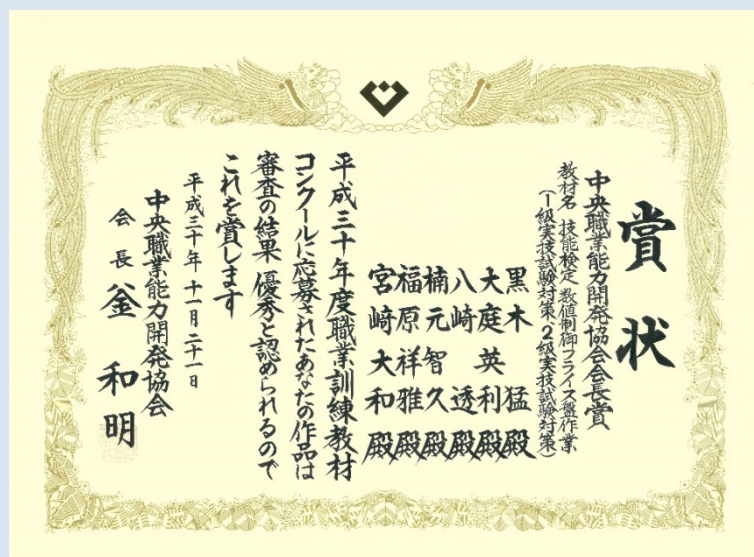 賞状
中央職業能力開発協会会長賞
教材名 技能検定 数値制御フライス盤作業
(1級実技試験対策・2級実技試験対策)
黒木猛殿
大庭英利殿
八崎透殿
楠元智久殿
福原祥雅殿
宮崎大和殿
平成三十年度職業訓練教材
コンクールに応募されたあなたの作品は
審査の結果 優秀と認められるので
これを賞します
平成三十年十一月二十一日
中央職業能力開発協会
会長 釜和明